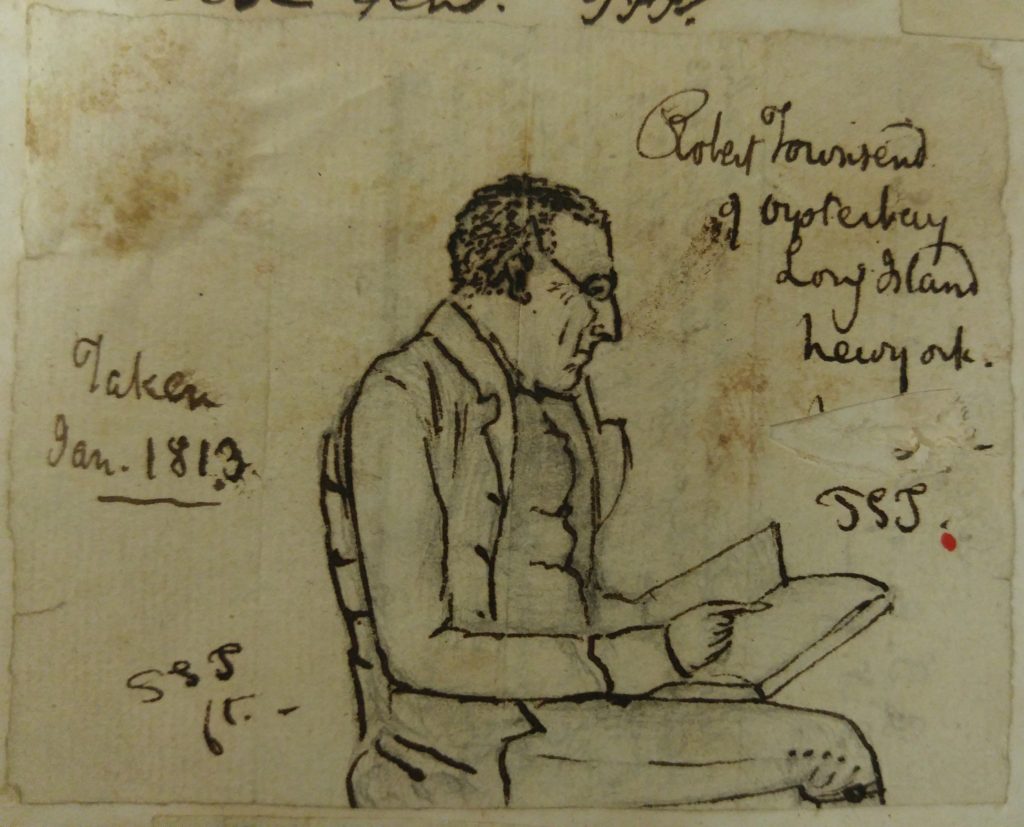 TSS.
Robert Townsend
of Oysterbay
Long Island
Newyork.
Taken
Jan. 1813.
TST.
SST